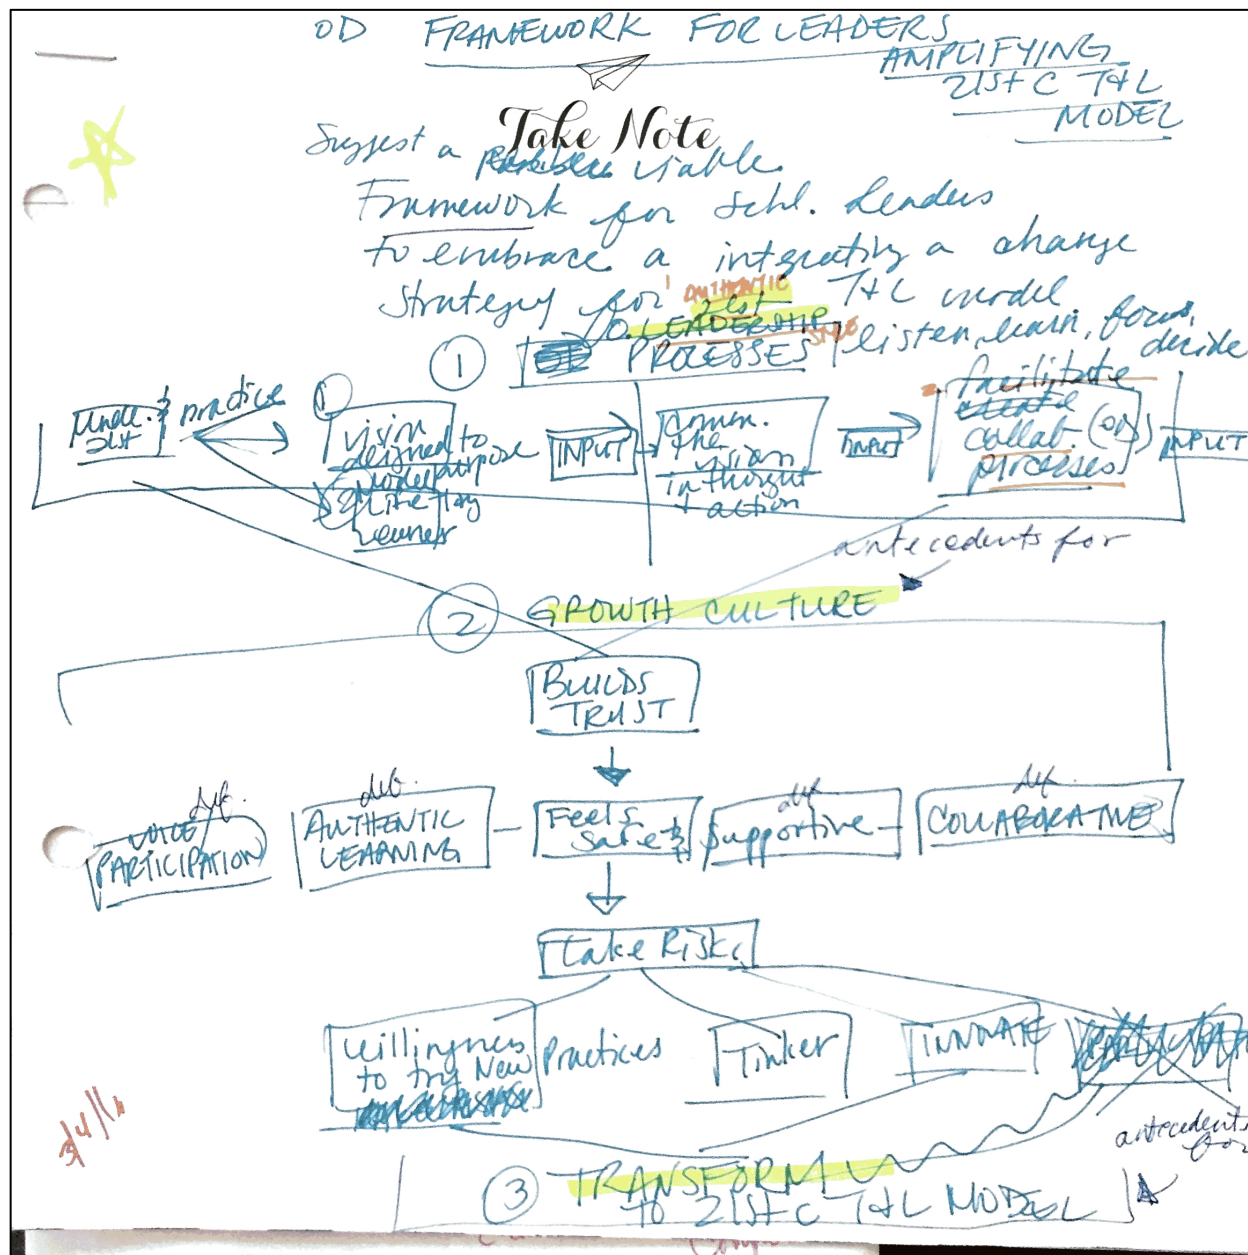 OD FRAMEWORK FOR LEADERS
AMPLIFYING
21st C T&L
MODEL
Take Note
Suggest a viable
Framework for Schl. Leaders
to embrace a integrating a change
Strategy for 21st T&L model
AUTHENTIC
LEADERSHIP
① PROCESSES listen, learn, focus, decide
21st
& practice
vision
designed to
purpose
INPUT
comm.
the
vision
in thought
+ action
INPUT
facilitate
create
collab.
processes
INPUT
antecedents for
② GROWTH CULTURE
BUILDS
TRUST
def.
VOICE
PARTICIPATION
AUTHENTIC
LEARNING
Feels
Safe &
def
Supportive
def.
COLLABORATIVE
take Risks
Willingness
to try New
Practices
Tinker
INNOVATE
antecedents
for
③ TRANSFORM
TO 21st C T&L MODEL